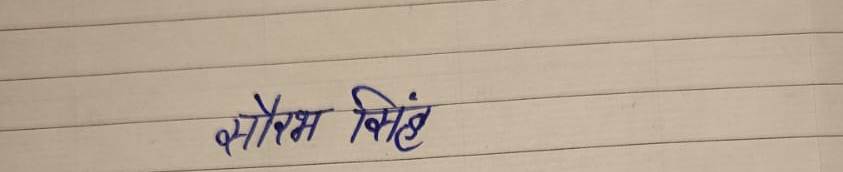 सौरभ सिंह